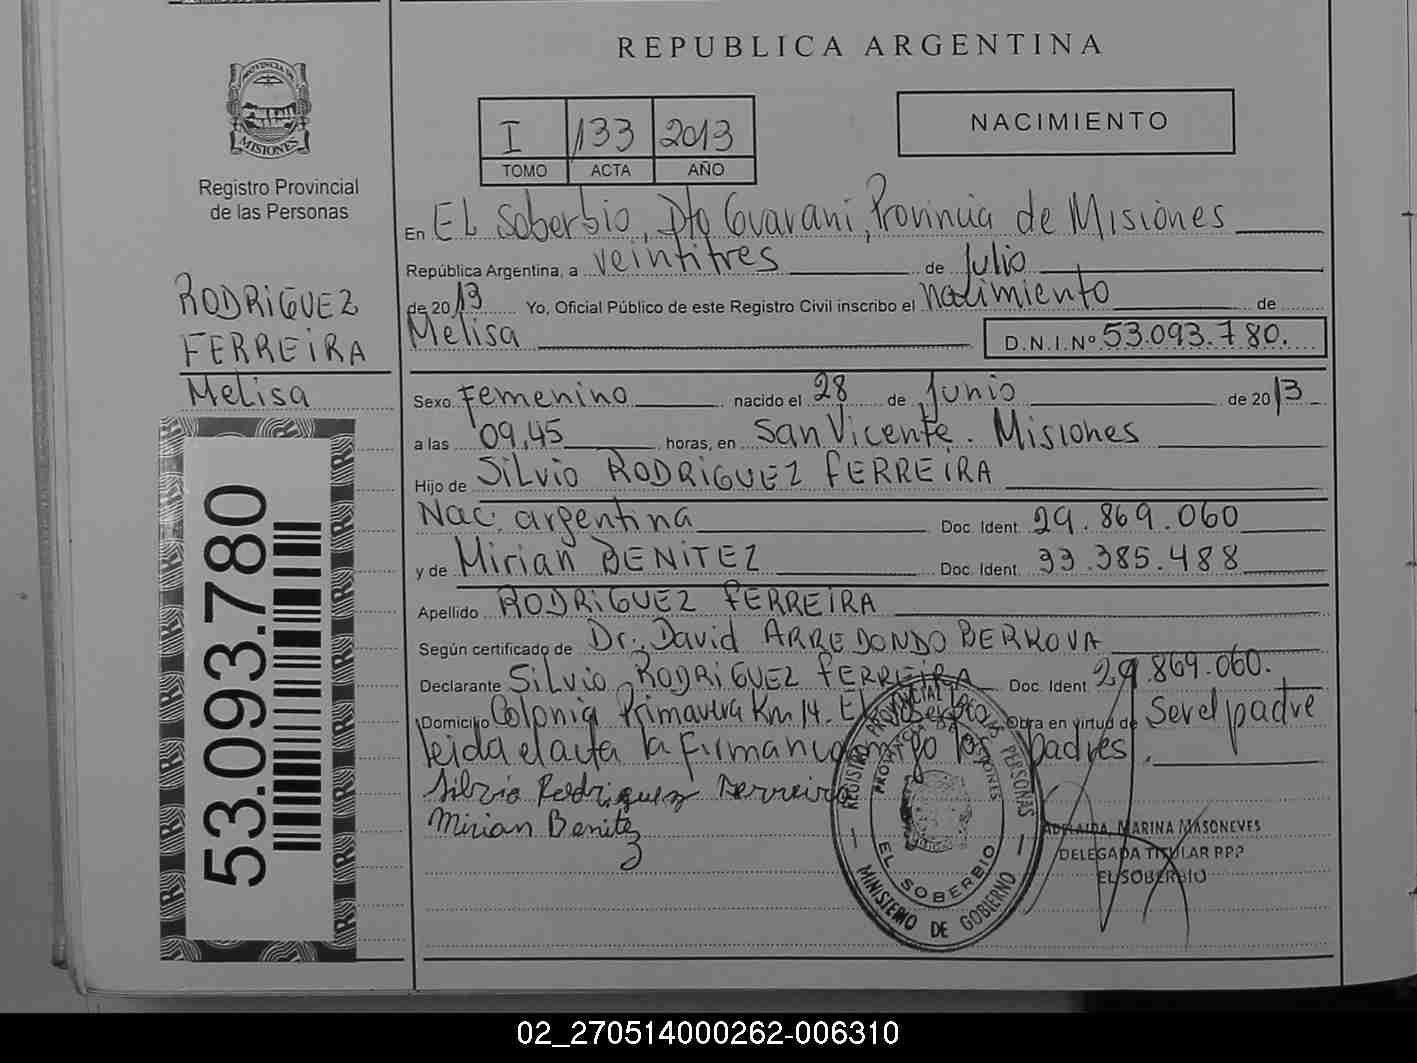 REPUBLICA ARGENTINA
PROVINCIA DE
MISIONES
Registro Provincial
de las Personas
I 133 2013
TOMO ACTA AÑO
NACIMIENTO
RODRiGUEZ
FERREiRA
Melisa
53.093.780
En EL Soberbio, Dto Guarani, Provincia de Misiones
República Argentina, a veintitres de Julio
de 2013 Yo, Oficial Público de este Registro Civil inscribo el nacimiento de
Melisa D.N.I.Nº 53.093.780.
Sexo Femenino nacido el 28 de Junio de 2013
a las 09,45 horas, en San Vicente. Misiones
Hijo de SiLvio RODRiGUEZ FERREiRA
Nac. argentina Doc. Ident. 29.869.060
y de Mirian BENiTEZ Doc. Ident. 33.385.488
Apellido RODRiGUEZ FERREiRA
Según certificado de Dr. David ARREDONDO BERKOVA
Declarante SiLvio RODRiGUEZ FERREiRA Doc. Ident 29.869.060.
Domicilio Colonia Primavera Km 14. El Soberbio Obra en virtud de Ser el padre
leida el acta la firman conmigo los padres.
Silvio Rodriguez Ferreira
Mirian Benitez
REGISTRO PROVINCIAL DE LAS PERSONAS
PROVINCIA DE MISIONES
EL SOBERBIO
MINISTERIO DE GOBIERNO
ADELAIDA MARINA MASONEVES
DELEGADA TITULAR RPP
EL SOBERBIO
02_270514000262-006310